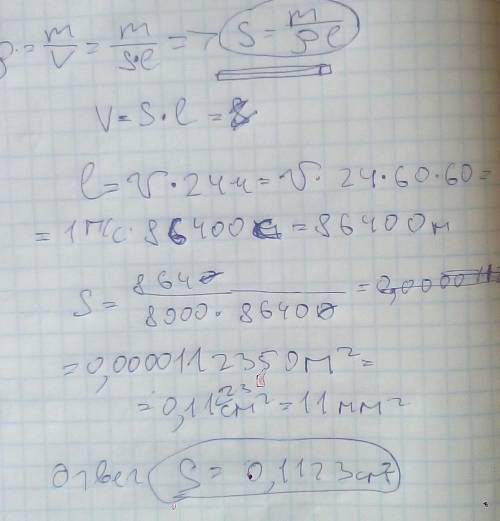 ρ = m/V = m/S·l => S = m/ρl
V = S·l =
l = v·24ч = v·24·60·60 =
= 1м/с·86400 = 86400м
S = 8640/8900·86400 = 0,0000
= 0,0000112350м² =
= 0,1123см² = 11мм²
Ответ S = 0,1123см²